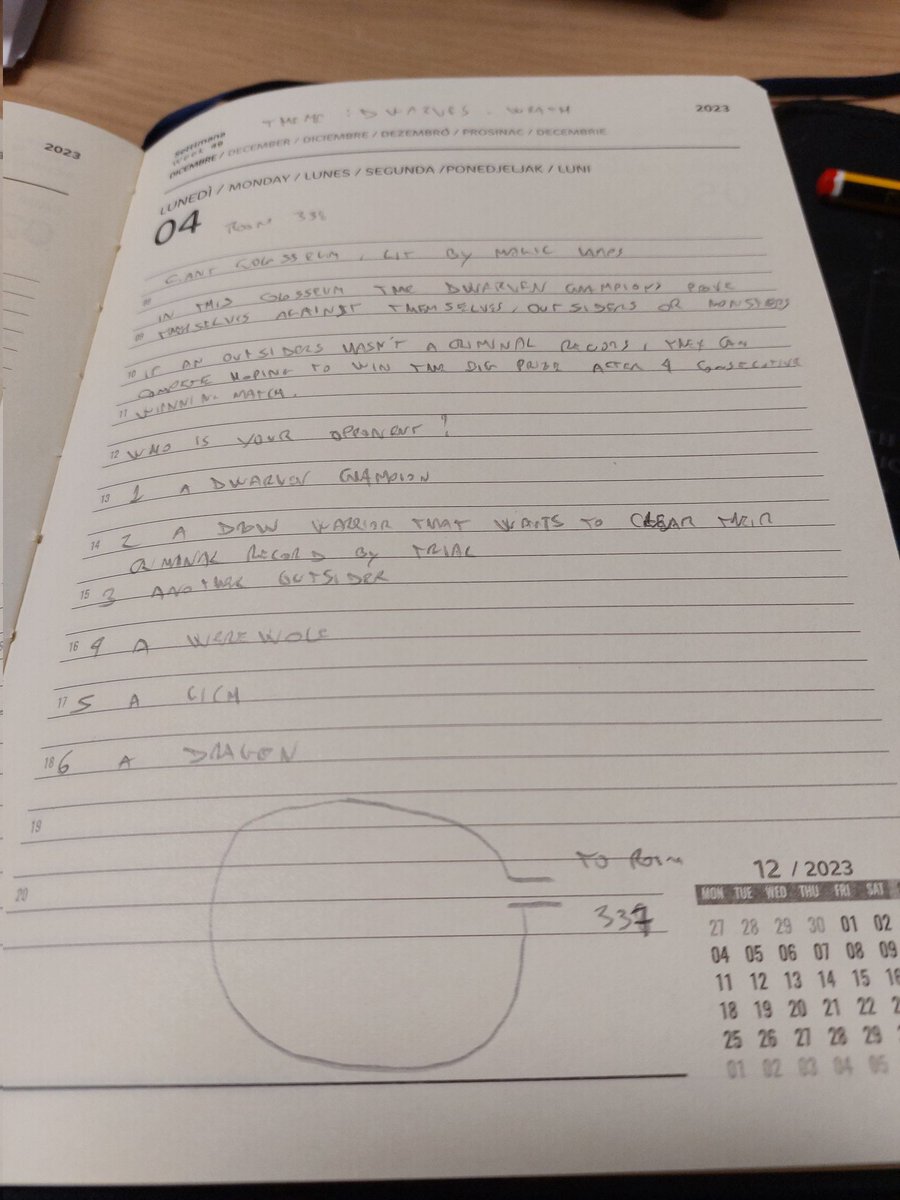 2023
THEME : DWARVES . WRATH
2023
Settimana
Week 49
DICEMBRE / DECEMBER / DICIEMBRE / DEZEMBRO / PROSINAC / DECEMBRIE
LUNEDÌ / MONDAY / LUNES / SEGUNDA / PONEDJELJAK / LUNI
04 ROOM 338
GIANT COLOSSEUM, LIT BY MAGIC LAMPS
08
IN THIS COLOSSEUM THE DWARVEN CHAMPIONS PROVE
09 THEMSELVES AGAINST THEMSELVES, OUTSIDERS OR MONSTERS
10 IF AN OUTSIDERS HASN'T A CRIMINAL RECORD, THEY CAN
COMPETE HOPING TO WIN THE BIG PRIZE AFTER 4 CONSECUTIVE
11 WINNING MATCH.
12 WHO IS YOUR OPPONENT?
13 1 A DWARVEN CHAMPION
14 2 A DROW WARRIOR THAT WANTS TO CLEAR THEIR
CRIMINAL RECORD BY TRIAL
15 3 ANOTHER OUTSIDER
16 4 A WEREWOLF
17 5 A LICH
18 6 A DRAGON
19
20
TO ROOM
337
12 / 2023
MON TUE WED THU FRI SAT
27 28 29 30 01 02
04 05 06 07 08 09
11 12 13 14 15 16
18 19 20 21 22
25 26 27 28 29
01 02 03 04 05